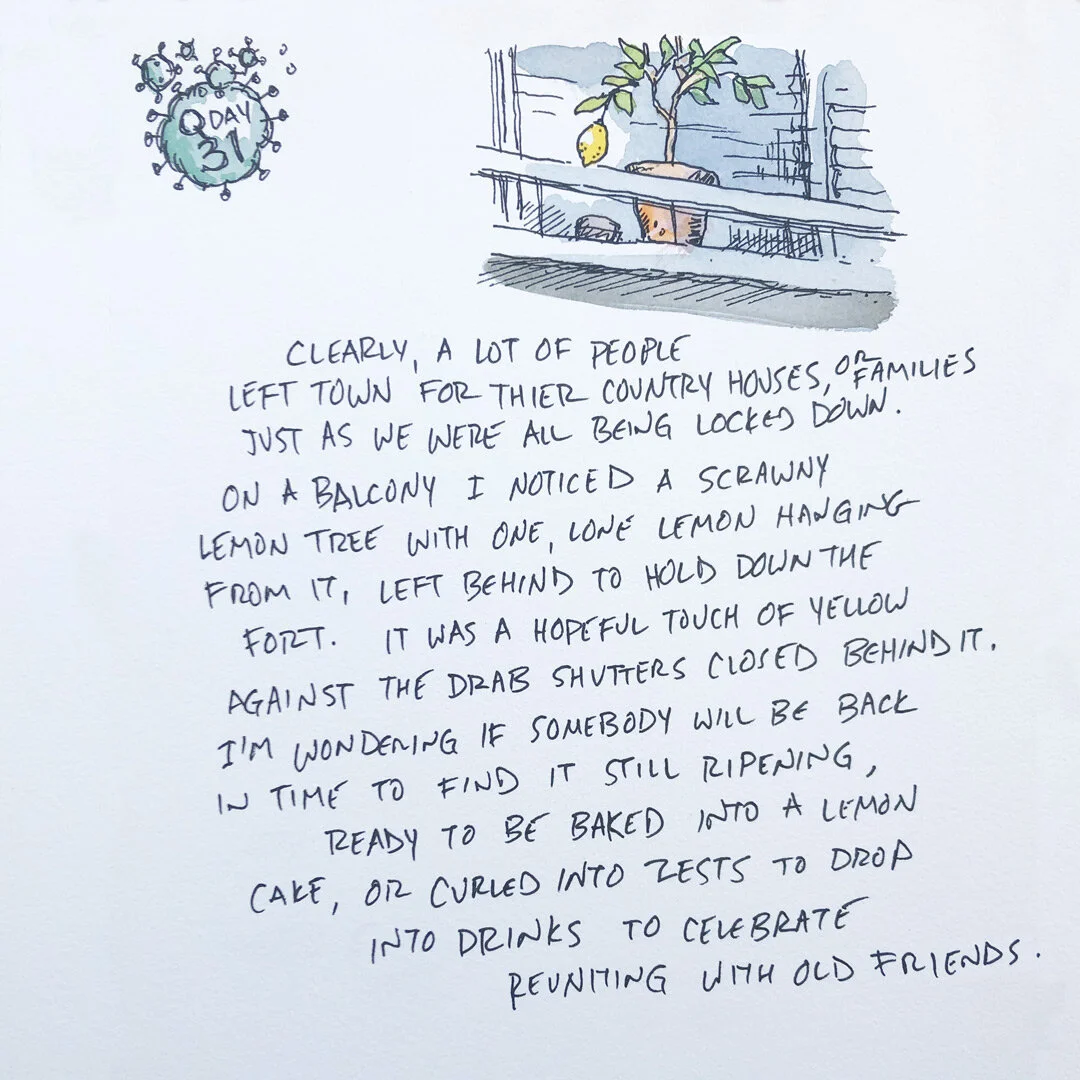 Q DAY
31
CLEARLY, A LOT OF PEOPLE
LEFT TOWN FOR THIER COUNTRY HOUSES, OR FAMILIES
JUST AS WE WERE ALL BEING LOCKED DOWN.
ON A BALCONY I NOTICED A SCRAWNY
LEMON TREE WITH ONE, LONE LEMON HANGING
FROM IT, LEFT BEHIND TO HOLD DOWN THE
FORT. IT WAS A HOPEFUL TOUCH OF YELLOW
AGAINST THE DRAB SHUTTERS CLOSED BEHIND IT.
I'M WONDERING IF SOMEBODY WILL BE BACK
IN TIME TO FIND IT STILL RIPENING,
READY TO BE BAKED INTO A LEMON
CAKE, OR CURLED INTO ZESTS TO DROP
INTO DRINKS TO CELEBRATE
REUNITING WITH OLD FRIENDS.